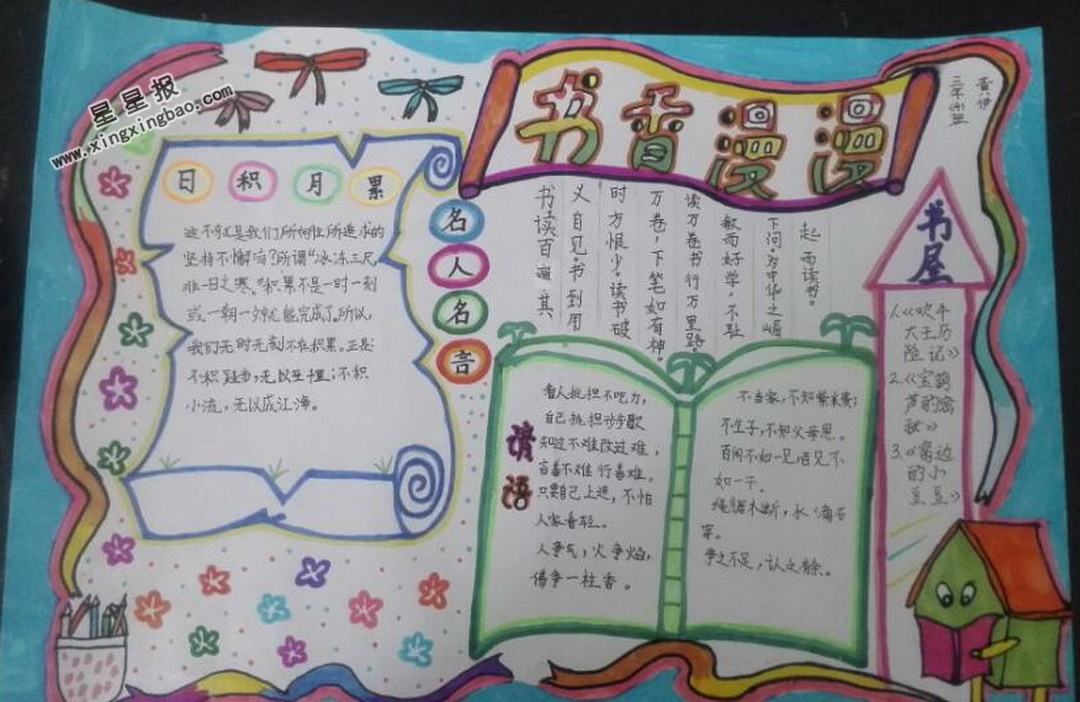 星星报
www.xingxingbao.com
书香漫漫
黄伊
日积月累
这不就是我们所向往所追求的
坚持不懈吗?所谓“冰冻三尺,
非一日之寒。”积累不是一时一刻
或一朝一夕就能完成了。所以,
我们无时无刻不在积累。正是:
不积跬步,无以至千里;不积
小流,无以成江海。
名人名言
书读百遍其
义自见。书到用
时方恨少。读书破
万卷,下笔如有神。
读万卷书行万里路。
敏而好学,不耻
下问。为中华之崛
起而读书。
谚语
看人挑担不吃力,
自己挑担步步歇
知过不难改过难,
言善不难行善难。
只要自己上进,不怕
人家看轻。
人争气,火争焰,
佛争一柱香。
不当家,不知柴米贵;
不生子,不知父母恩。
百闻不如一见,百见不
如一干。
绳锯木断,水滴石
穿。
争之不足,让之有余。
书屋
1.《吹牛
大王历
险记》
2.《宝葫
芦的秘
密》
3.《窗边
的小
豆豆》